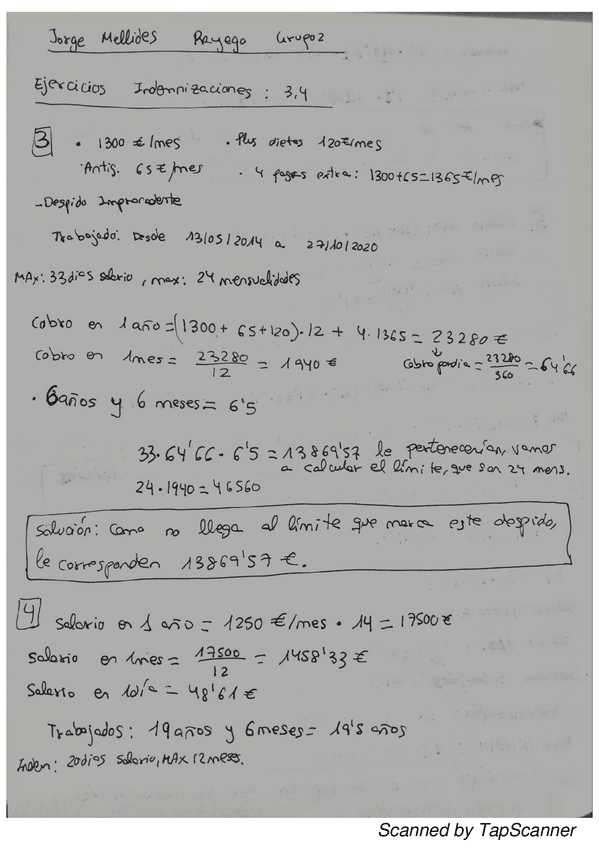 Jorge Mellides Rayego Grupo 2
Ejercicios Indemnizaciones : 3,4
3 • 1300 €/mes • Plus dietas 120€/mes
• Antig. 65 €/mes • 4 pagas extra: 1300+65=1365€/mes
- Despido Improcedente
Trabajado: Desde 13/05/2014 a 27/10/2020
MAx: 33 días salario, max: 24 mensualidades
Cobro en 1 año = (1300 + 65 + 120) · 12 + 4 · 1365 = 23280 €
Cobro en 1mes = 23280/12 = 1940 € Cobro por dia = 23280/360 = 64'66
• 6 años y 6 meses = 6'5
33 · 64'66 · 6'5 = 13869'57 le pertenecerían, vamos
a calcular el límite, que son 24 mens.
24 · 1940 = 46560
Solución: Como no llega al límite que marca este despido,
le corresponden 13869'57 €.
4 Salario en 1 año = 1250 €/mes · 14 = 17500 €
Salario en 1mes = 17500/12 = 1458'33 €
Salario en 1día = 48'61 €
Trabajados: 19 años y 6 meses = 19'5 años
Indem: 20 dias salario, MAx 12 meses.
Scanned by TapScanner